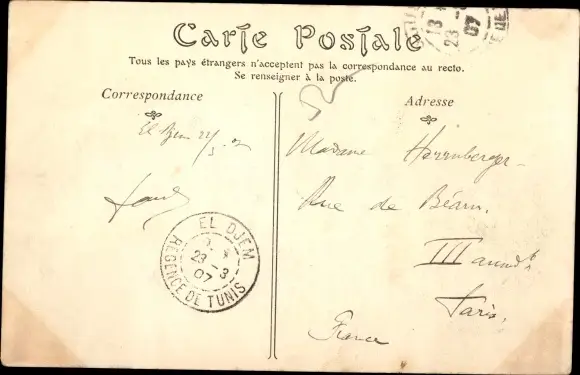 Carte Postale
Tous les pays étrangers n'acceptent pas la correspondance au recto.
Se renseigner à la poste.
Correspondance
El Djem 22/3 07
EL DJEM
23 - 3
07
RÉGENCE DE TUNIS
13
23
07
Adresse
Madame
Rue de Béarn.
III arrondt
Paris.
France